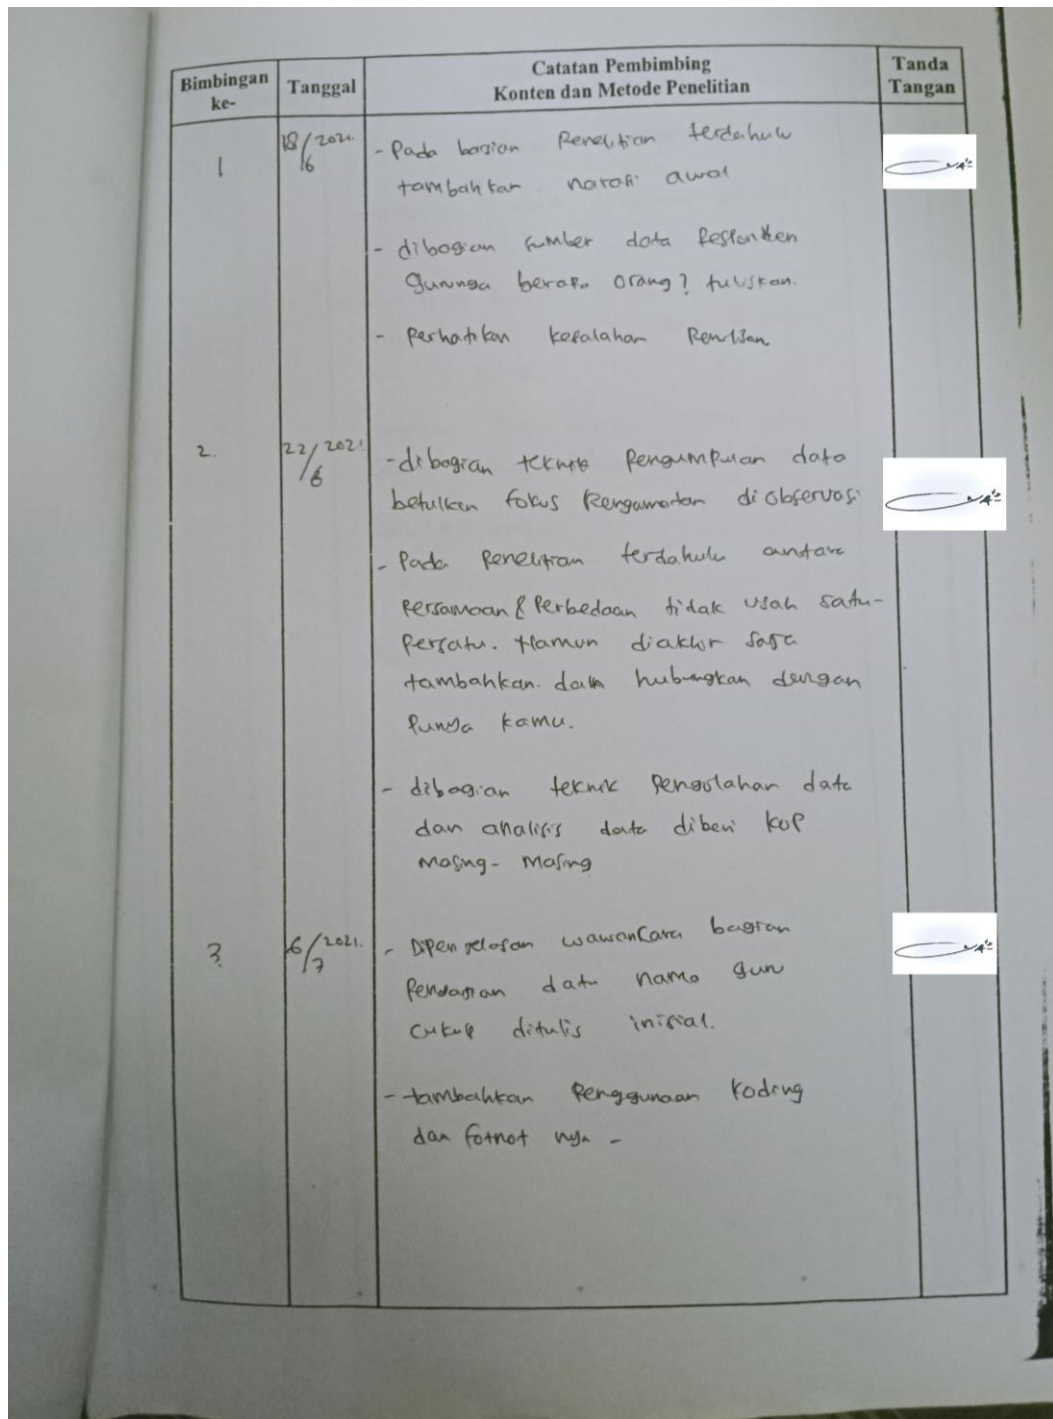 Bimbingan ke-
Tanggal
Catatan Pembimbing
Konten dan Metode Penelitian
Tanda Tangan
1
18/6 2021.
- Pada bagian Penelitian terdahulu
tambahkan narasi awal
- dibagian sumber data Responden
gurunya berapa orang? tuliskan.
- Perhatikan kesalahan Penulisan
2.
22/6 2021
- dibagian teknik Pengumpulan data
betulkan fokus Pengamatan di observasi
- Pada Penelitian terdahulu antara
Persamaan & Perbedaan tidak usah satu-
Persatu. Namun diakhir saja
tambahkan. dan hubungkan dengan
Punya kamu.
- dibagian teknik Pengolahan data
dan analisis data diberi kop
Masing- Masing
3.
6/7 2021.
- Dipenjelasan wawancara bagian
Penyajian data nama guru
cukup ditulis inisial.
- tambahkan Penggunaan Koding
dan fotnot nya -